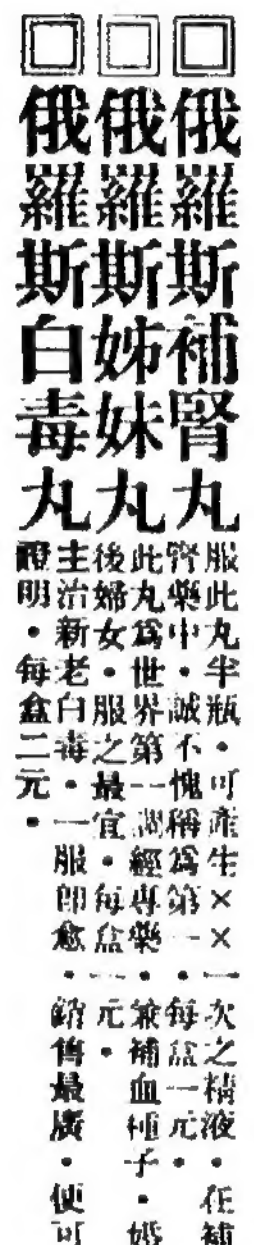 □俄羅斯補腎丸
服此丸半瓶・可產生××一次之精液・在補
腎藥中・誠不愧稱爲第一・每盒一元・
□俄羅斯姊妹丸
此丸爲世界第一調經專藥・兼補血種子・婚
後婦女・服之最宜・每盒一元・
□俄羅斯白毒丸
主治新老白毒・一服卽愈・銷售最廣・便可
證明・每盒二元・